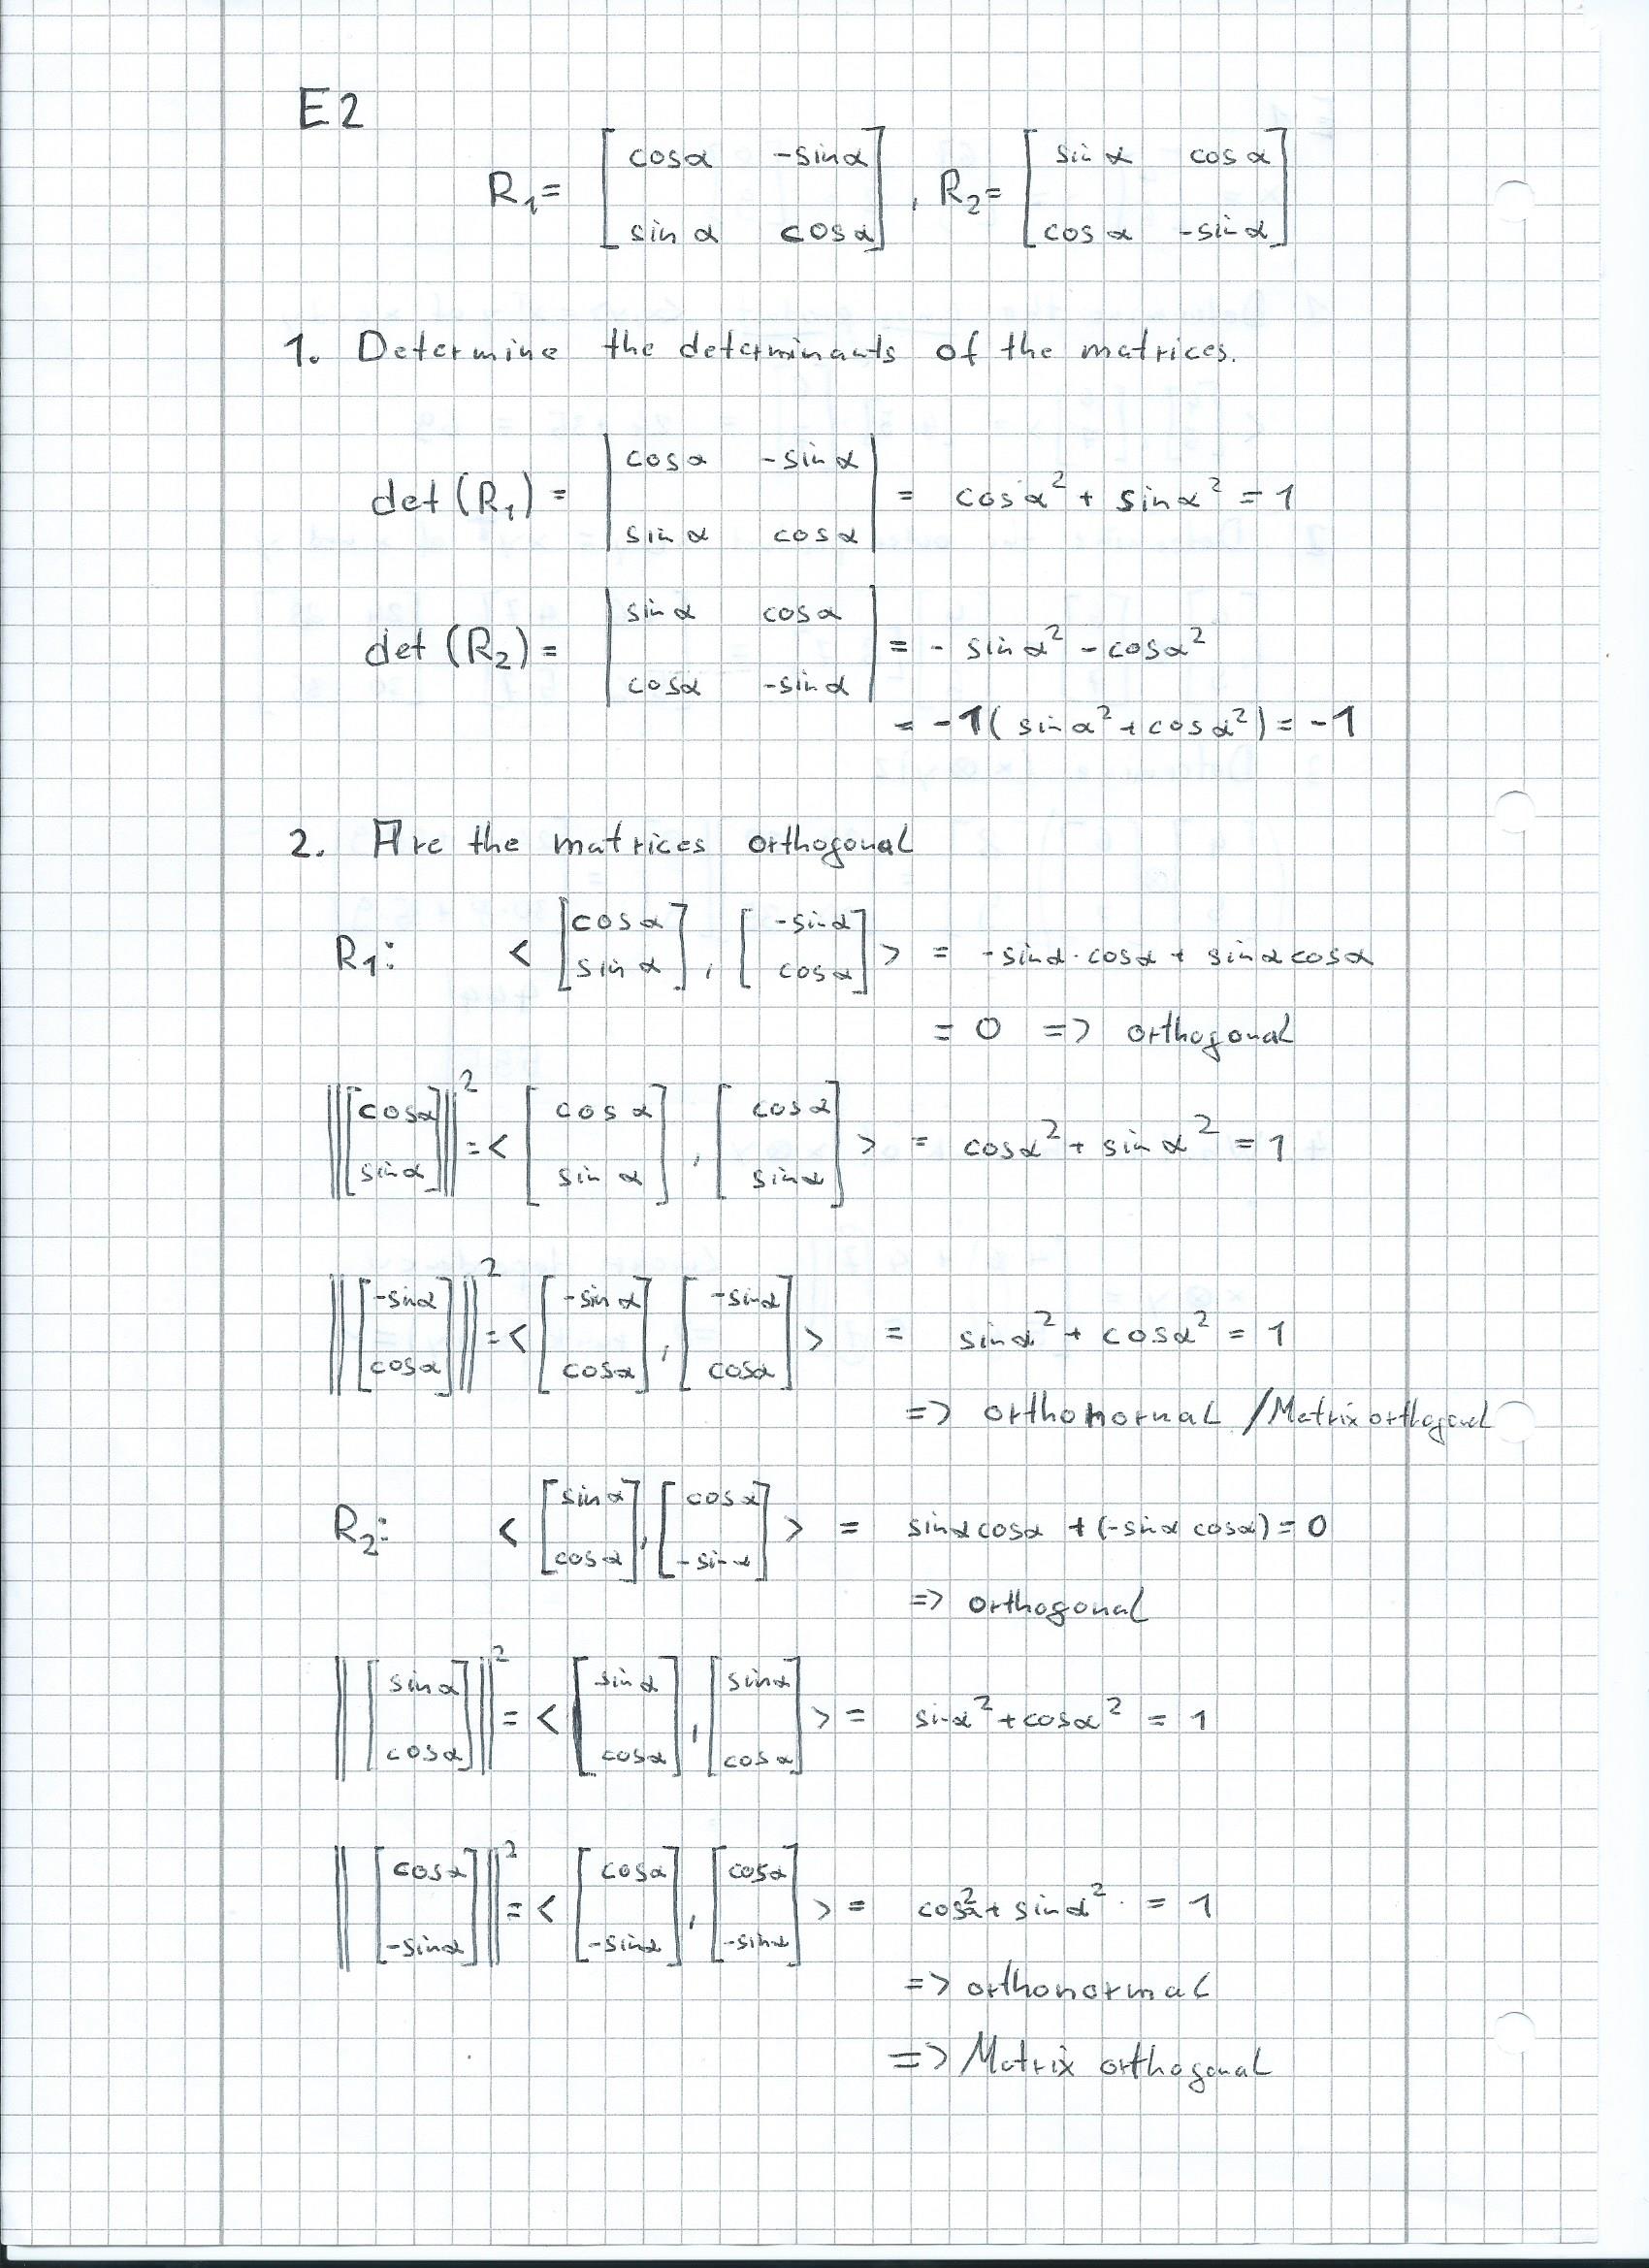 E2
R₁= [cosα -sinα; sin α cosα] , R₂= [sin α cos α; cos α -sin α]
1. Determine the determinants of the matrices.
det (R₁) = |cosα -sinα; sinα cosα| = cosα² + sinα² = 1
det (R₂) = |sinα cosα; cosα -sinα| = - sinα² - cosα²
= -1( sinα² + cosα²) = -1
2. Are the matrices orthogonal
R₁: < [cosα; sinα] , [-sinα; cosα] > = -sinα·cosα + sinαcosα
= 0 => orthogonal
||[cosα; sinα]||² = < [cosα; sinα] , [cosα; sinα] > = cosα² + sinα² = 1
||[-sinα; cosα]||² = < [-sinα; cosα] , [-sinα; cosα] > = sinα² + cosα² = 1
=> orthonormal / Matrix orthogonal
R₂: < [sinα; cosα] , [cosα; -sinα] > = sinαcosα + (-sinα cosα) = 0
=> orthogonal
||[sinα; cosα]||² = < [sinα; cosα] , [sinα; cosα] > = sinα² + cosα² = 1
||[cosα; -sinα]||² = < [cosα; -sinα] , [cosα; -sinα] > = cosα² + sinα² = 1
=> orthonormal
=> Matrix orthogonal